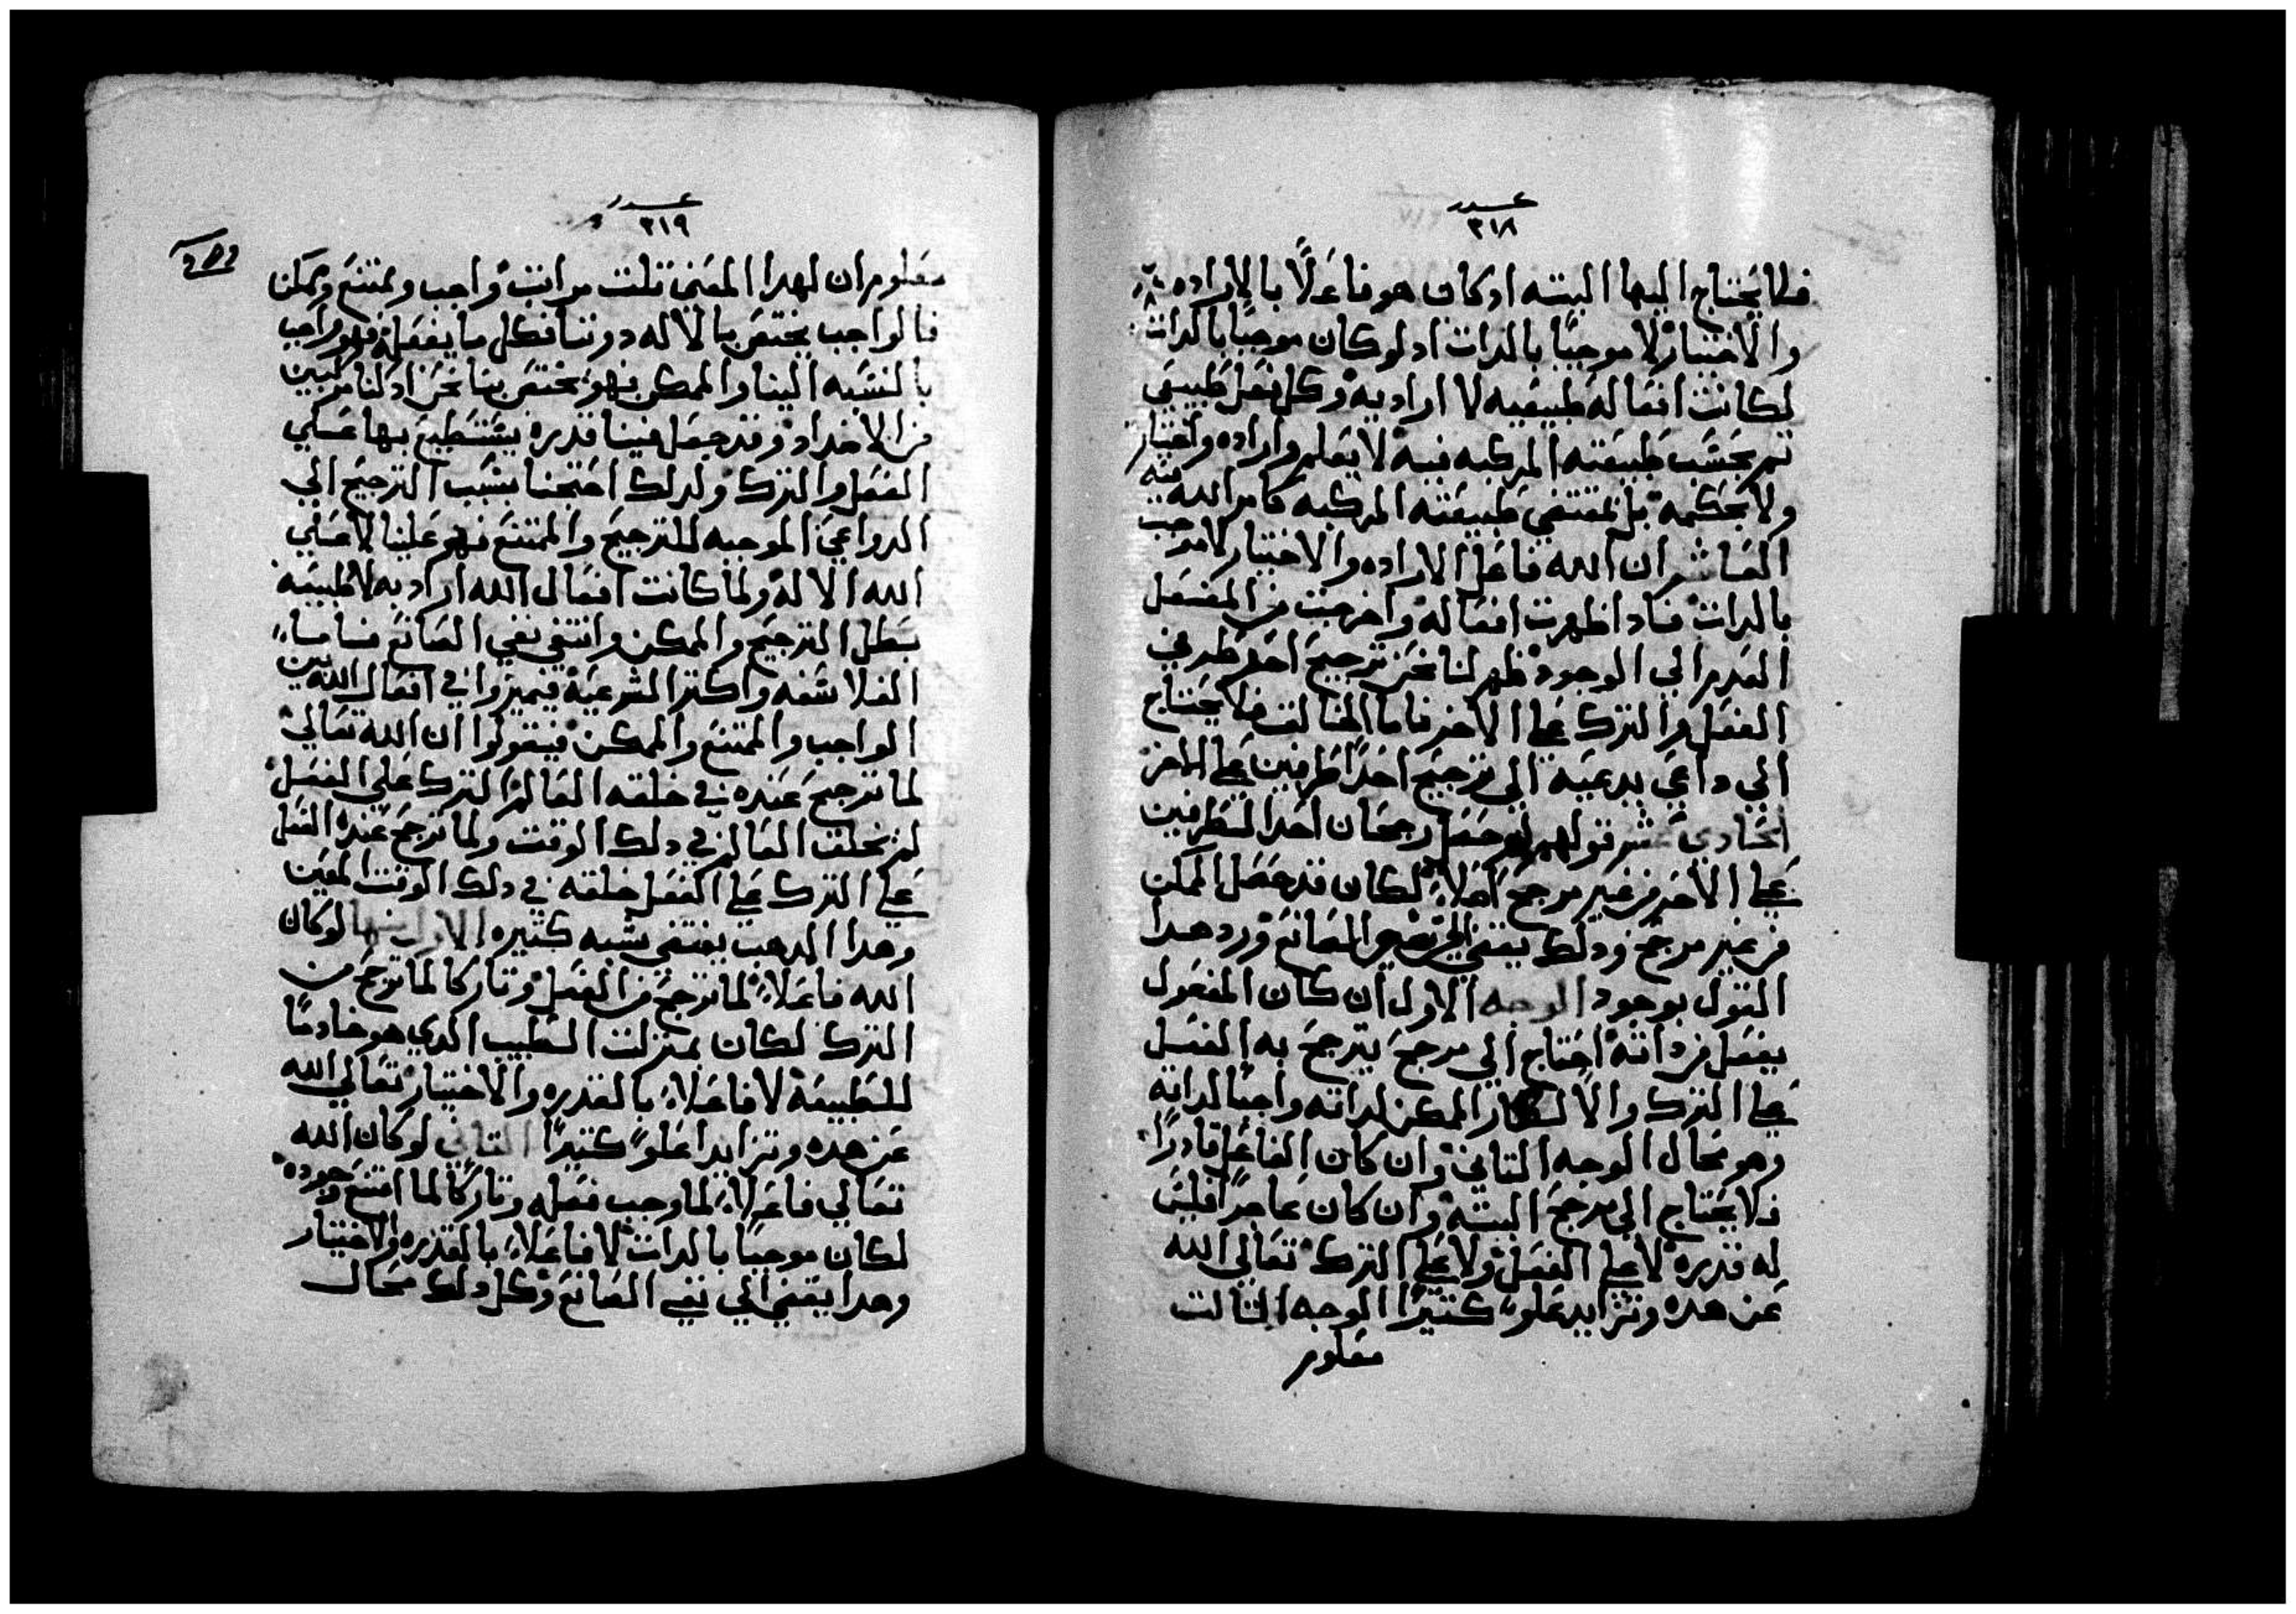 عدد
٣١٨
فلا يحتاج اليها البته ادكان هو فاعلًا بالاراده
والاختيار لا موجبًا بالدات ادلو كان موجبًا بالدات
لكانت افعاله طبيعيه لا اراديه وكل فعل طبيعي
تم بحسب طبيعته المركبه فيه لا بعلم واراده واختيار
ولا بحكمه بل بمقتضي طبيعته المركبه كامر الله فيه
العاشر ان الله فاعل الاراده والاختيار لا موجب
بالدات فادا ظهرت افعاله واخرجت من المفتعل
العدم الي الوجود ظهر لنا نحن ترجيح احد طرفي
الفعل والترك علي الاخر فاما الخالق فلا يحتاج
الي داعي يدعيه الي ترجيح احد اطرفين علي الاخر
الحادي عشر قولهم لو حصل رجحان احد الطرفين
علي الاخر من غير مرجح اصلاً لكان قد حصل الممكن
من غير مرجح ودلك يفضي الي نفي الصانع ورد هدا
القول بوجود الوجه الاول ان كان المفعول
يفعل من داته احتاج الي مرجح يترجح به الفعل
علي الترك والا لكان الممكن لداته واجبًا لداته
وهو محال الوجه التاني وان كان الفاعل قادرًا
فلا يحتاج الي مرجح البته وان كان عاجزًا فليس
له قدره لا علي الفعل ولا علي الترك تعالي الله
عن هده وتزايد علوًا كتيرًا الوجه التالت
معلوم
عدد
٣١٩
معلوم ان لهدا المعني تلت مراتب واجب وممتنع وممكن
فالواجب يختص بالاله دوننا فكل ما يفعله فهو واجب
بالنسبه الينا والممكن فهو يختص بنا نحن ادكنا مركبين
من الاضداد وقد جعل فينا قدره يستطيع بها علي
الفعل والترك ولدلك احتجنا بسبب الترجيح الي
الدواعي الموجبه للترجيح والممتنع فهو علينا لا علي
الله الاله ولما كانت افعال الله اراديه لا طبيعيه
بطل الترجيح والممكن وانتفي نفي الصانع فاما
الفلاسفه واكتر الشرعيه فيميزوا في افعال الله بين
الواجب والممتنع والممكن فيقولوا ان الله تعالي
لما ترجح عنده في خلقه العالم الترك علي الفعل
لم يخلق العالم في دلك الوقت ولما ترجح عنده الفعل
علي الترك علي الفعل خلقه في دلك الوقت المعين
وهدا المدهب يقتضي شبه كتيره الاولي منها لو كان
الله فاعلاً لما ترجح من الفعل وتاركا لما ترجح من
الترك لكان بمنزلت الطبيب الدي هو خادمًا
للطبيعه لا فاعلاً بالقدره والاختيار تعالي الله
عن هده وتزايدا علوًا كتيرًا التاني لو كان الله
تعالي فاعلاً لما وجب فعله وتاركًا لما امتنع وجوده
لكان موجبًا بالدات لا فاعلاً بالقدره والاختيار
وهدا يفضي الي نفي الصانع وكل دلك محال